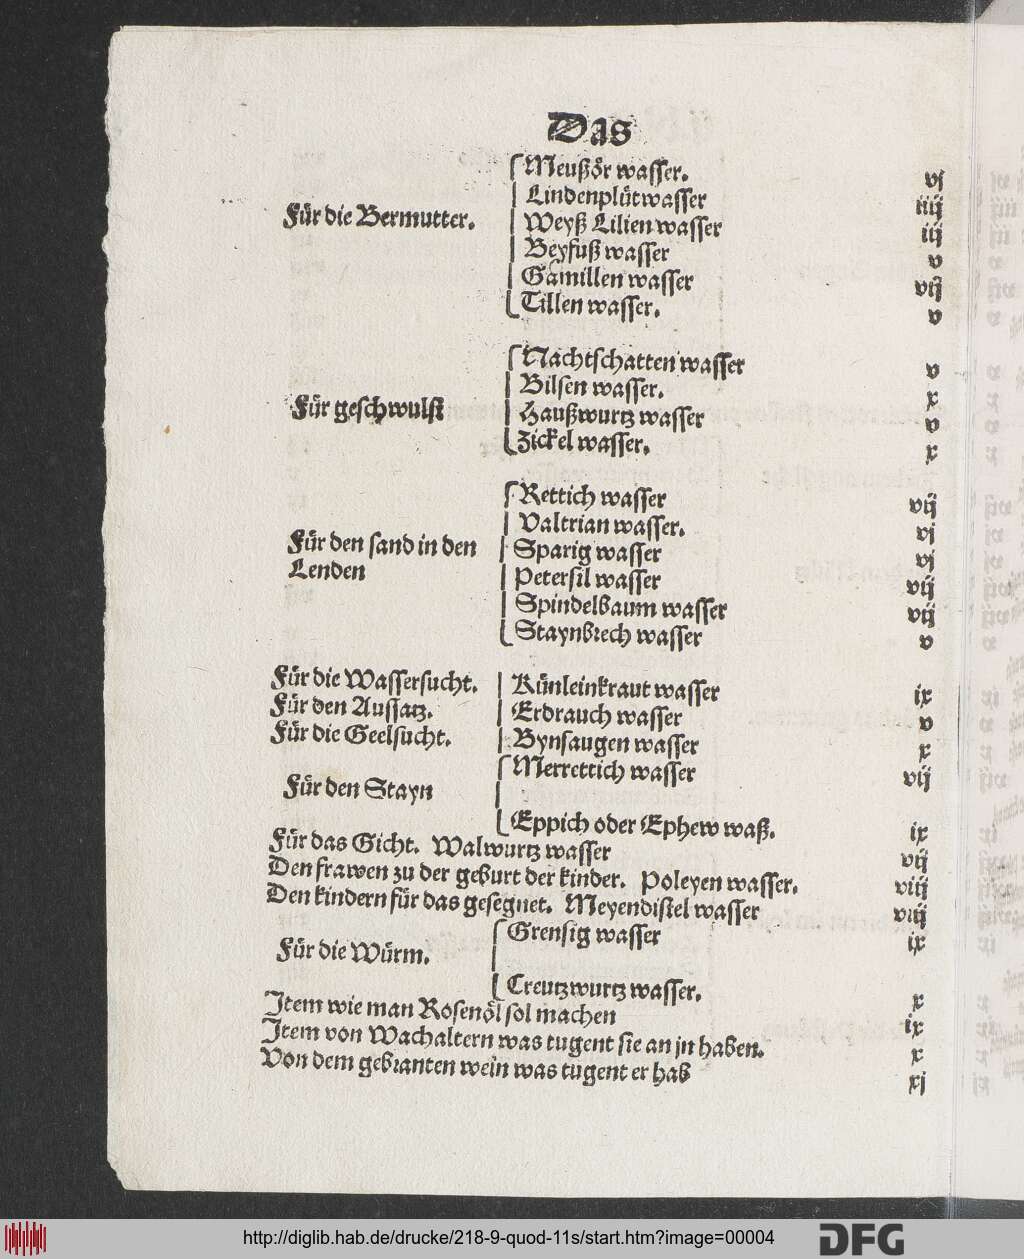 Das
Meußör wasser. vj
Lindenplütwasser iiij
Für die Bermutter. Weyß Lilien wasser iij
Beyfuß wasser v
Gamillen wasser vij
Tillen wasser. v
Nachtschatten wasser v
Bilsen wasser. x
Für geschwulst Haußwurtz wasser v
Zickel wasser. x
Rettich wasser vij
Valtrian wasser. vj
Für den sand in den Sparig wasser vj
Lenden Petersil wasser vij
Spindelbaum wasser vij
Staynbrech wasser v
Für die Wassersucht. Künleinkraut wasser ix
Für den Aussatz. Erdrauch wasser v
Für die Geelsucht. Bynsaugen wasser x
Merrettich wasser vij
Für den Stayn
Eppich oder Ephew waß. ix
Für das Gicht. Walwurtz wasser vij
Den frawen zu der geburt der kinder. Poleyen wasser. viij
Den kindern für das gesegnet. Meyendistel wasser viij
Grensig wasser ix
Für die Würm.
Creutzwurtz wasser. x
Item wie man Rosenöl sol machen ix
Item von Wachaltern was tugent sie an jn haben. x
Von dem gebranten wein was tugent er hab xj
http://diglib.hab.de/drucke/218-9-quod-11s/start.htm?image=00004
DFG